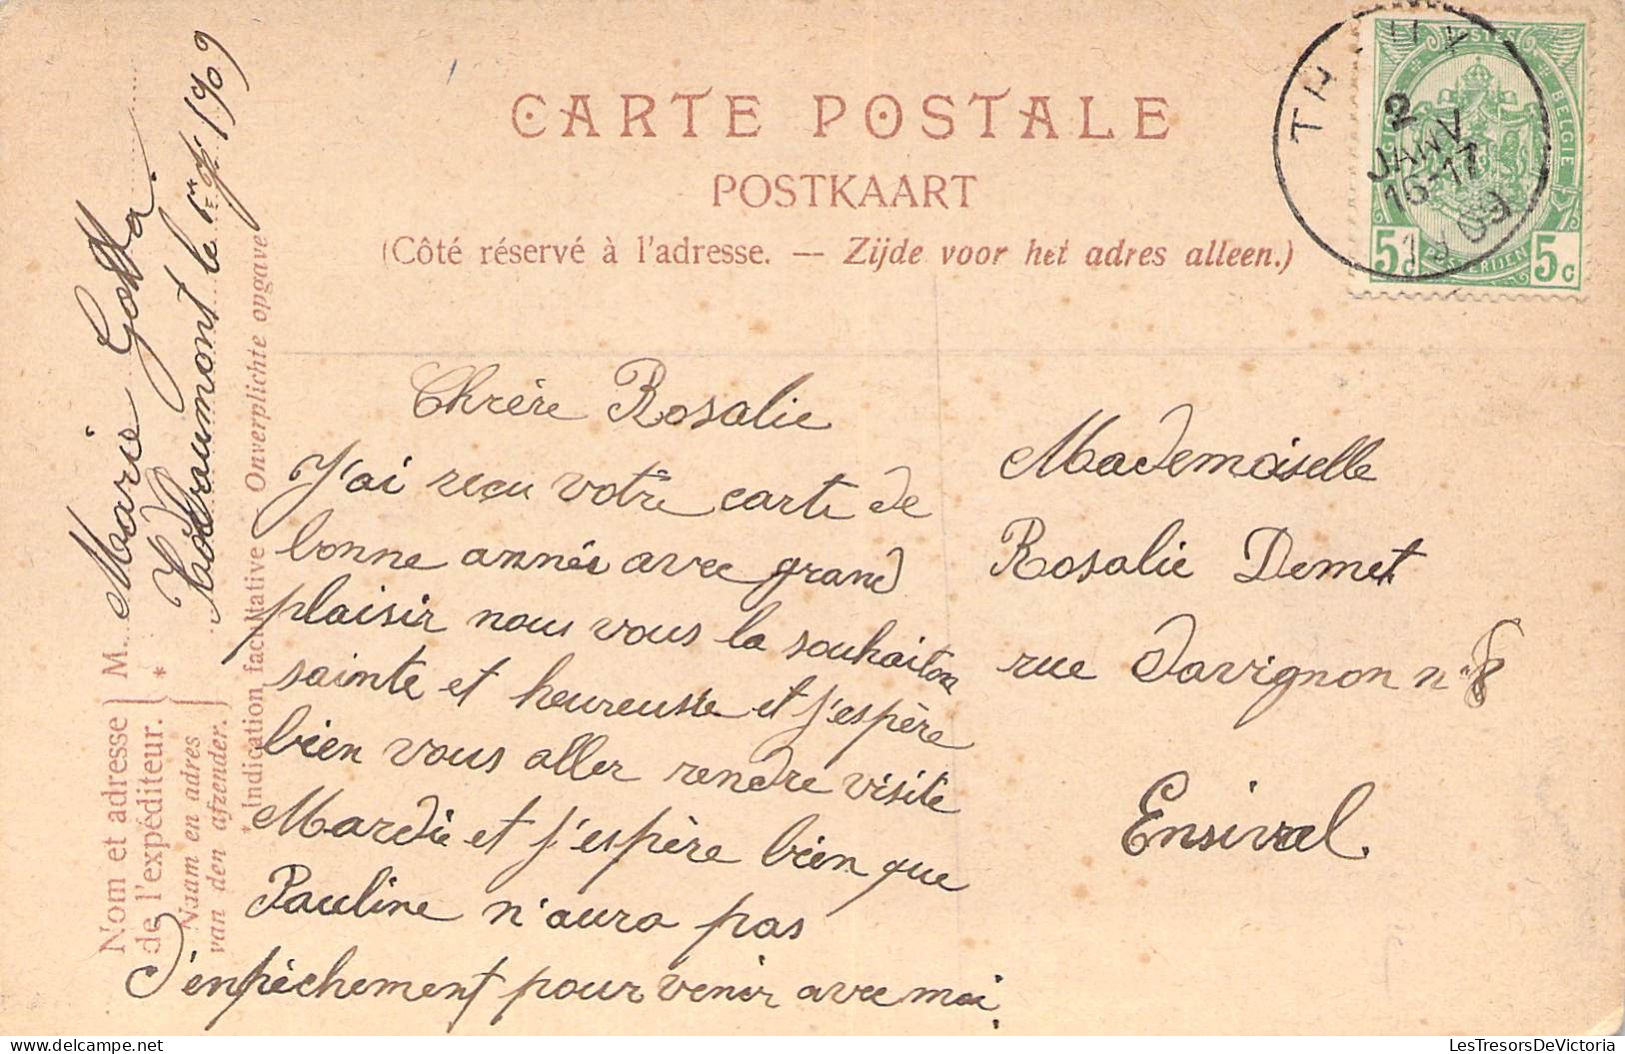 CARTE POSTALE
POSTKAART
(Côté réservé à l'adresse. — Zijde voor het adres alleen.)
POSTES
BELGIE
5c 5c
2
JANV
16-17
09
Nom et adresse
de l'expéditeur.
Naam en adres
van den afzender.
M. Marie
le 1er 1909
* Indication facultative Onverplichte opgave
Chrère Rosalie
J'ai reçu votre carte de
bonne année avec grand
plaisir nous vous la souhaitons
sainte et heureusse et j'espère
bien vous aller rendre visite
Mardie et j'espère bien que
Pauline n'aura pas
d'enpêchement pour venir avec moi.
Mademoiselle
Rosalie Demet
rue Davignon n° 8
Ensival.
LesTresorsDeVictoria
www.delcampe.net